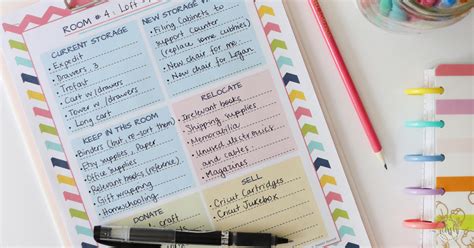 ROOM # 4: Loft
CURRENT STORAGE
Expedit
Drawers : 3
Trofast
Cart w/drawers
Tower w/drawers
Long cart
NEW STORAGE
Filing Cabinets to
support counter
(replace some cubbies)
New chair for me.
New chair for Logan.
KEEP IN THIS ROOM
Binders (but re-sort them)
Etsy supplies, Paper
Office supplies
Relevant books (reference)
Gift wrapping
Homeschooling
RELOCATE
Irrelevant books
Shipping supplies
Memorabilia
Unused electronics
and cables
Magazines
DONATE
craft
SELL
Cricut Cartridges
Cricut Jukebox